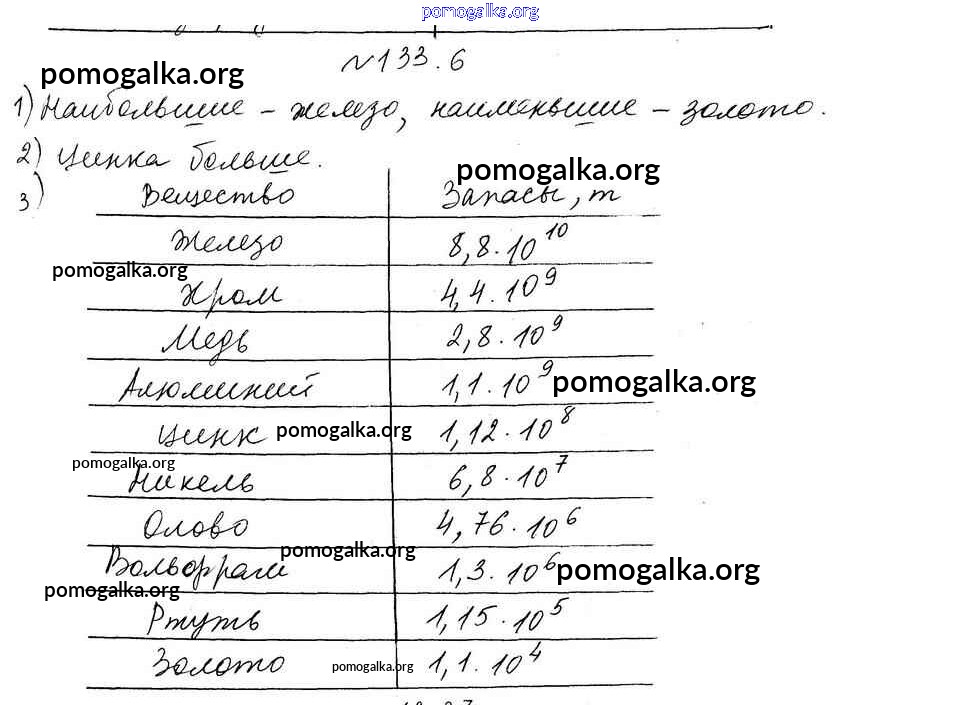 pomogalka.org
№133.6
pomogalka.org
1) Наибольшие – железо, наименьшие – золото.
2) Цинка больше.
pomogalka.org
3) Вещество Запасы, т
Железо 8,8·10^10
pomogalka.org
Хром 4,4·10^9
Медь 2,8·10^9
Алюминий 1,1·10^9 pomogalka.org
Цинк pomogalka.org 1,12·10^8
pomogalka.org
Никель 6,8·10^7
Олово 4,76·10^6
pomogalka.org
Вольфрам 1,3·10^6 pomogalka.org
pomogalka.org
Ртуть 1,15·10^5
Золото pomogalka.org 1,1·10^4